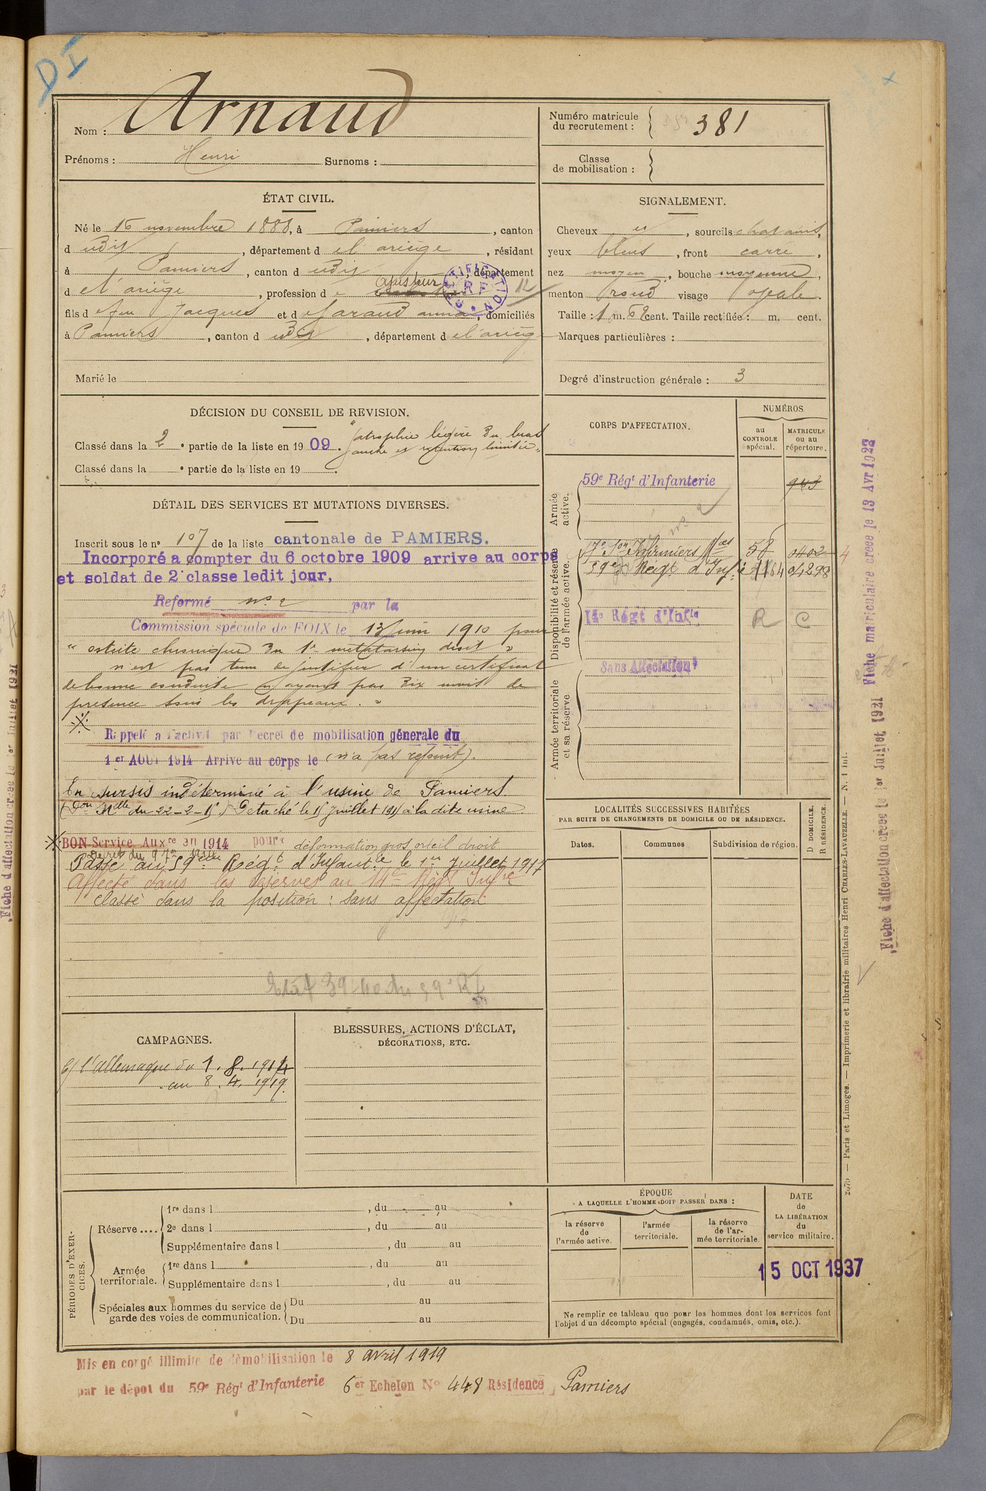 DI
Nom : Arnaud
Prénoms : Henri Surnoms :
Numéro matricule du recrutement : 381
Classe de mobilisation :
ÉTAT CIVIL.
Né le 16 novembre 1888, à Pamiers, canton
d udit, département d el ariège, résidant
à Pamiers, canton d udit, département
d el'ariège, profession d
fils d feu Jacques et d anna, domiciliés
à Pamiers, canton d udit, département d el'ariège
Marié le
SIGNALEMENT.
Cheveux et, sourcils chatains,
yeux bleus, front carré,
nez moyen, bouche moyenne,
menton rond visage ovale.
Taille : 1 m. 68 cent. Taille rectifiée : m. cent.
Marques particulières :
Degré d'instruction générale : 3
DÉCISION DU CONSEIL DE REVISION.
Classé dans la 2e partie de la liste en 1909. atrophie légère du bras
gauche et extension limitée
Classé dans la e partie de la liste en 19
DÉTAIL DES SERVICES ET MUTATIONS DIVERSES.
Inscrit sous le no 107 de la liste cantonale de PAMIERS.
Incorporé a compter du 6 octobre 1909 arrive au corps
et soldat de 2e classe ledit jour,
Reformé no 2 par la
Commission spéciale de FOIX le 13 juin 1910 pour
" ostéite chronique du 1er métatarsien droit "
n'est pas tenu de justifier d'un certificat
de bonne conduite n'ayant pas dix mois de
présence sous les drappeaux. "
Rappelé a l'activité par Décret de mobilisation générale du
1er AOUT 1914 Arrivé au corps le (n'a pas rejoint).
En sursis indéterminé à l'usine de Pamiers.
Détaché le 1er juillet 1917 à la dite usine
BON Service Auxre en 1914 pour déformation gros orteil droit
Passé au 59e Régt d'Infanterie le 1er juillet 1917
Affecté dans les réserves au 14e Régt Infie
classé dans la position : sans affectation
Etat 39-40 du 59e RI
CORPS D'AFFECTATION.
NUMÉROS
au CONTROLE spécial.
MATRICULE ou au répertoire.
Armée active.
59e Régt d'Infanterie
Disponibilité et réserve de l'armée active.
17e Son Infirmiers Mres 58
59e Régt d'Infie
14e Régt d'Infie R C
Armée territoriale et sa réserve
Sans Affectation
LOCALITÉS SUCCESSIVES HABITÉES
PAR SUITE DE CHANGEMENTS DE DOMICILE OU DE RÉSIDENCE.
Dates. Communes Subdivision de région.
D DOMICILE.
R RÉSIDENCE.
CAMPAGNES.
c/ l'allemagne du 1. 8. 1914
au 8. 4. 1919.
BLESSURES, ACTIONS D'ÉCLAT,
DÉCORATIONS, ETC.
PÉRIODES D'EXERCICES.
Réserve .... 1re dans l , du au
2e dans l , du au
Supplémentaire dans l , du au
Armée territoriale. 1re dans l , du au
Supplémentaire dans l , du au
Spéciales aux hommes du service de garde des voies de communication. Du au
Du au
ÉPOQUE
A LAQUELLE L'HOMME DOIT PASSER DANS :
la réserve de l'armée active.
l'armée territoriale.
la réserve de l'armée territoriale
DATE de LA LIBÉRATION du service militaire.
15 OCT 1937
Ne remplir ce tableau que pour les hommes dont les services font
l'objet d'un décompte spécial (engagés, condamnés, omis, etc.).
Mis en congé illimité de démobilisation le 8 avril 1919
par le dépot du 59e Régt d'Infanterie 6er Echelon No 448 Résidence Pamiers
Fiche matriculaire créée le 13 Avr 1922
Fiche d'affectation créée le 1er Juillet 1931
Paris et Limoges. — Imprimerie et librairie militaires Henri CHARLES-LAVAUZELLE.
Fiche d'affectation créée le 1er Juillet 1931